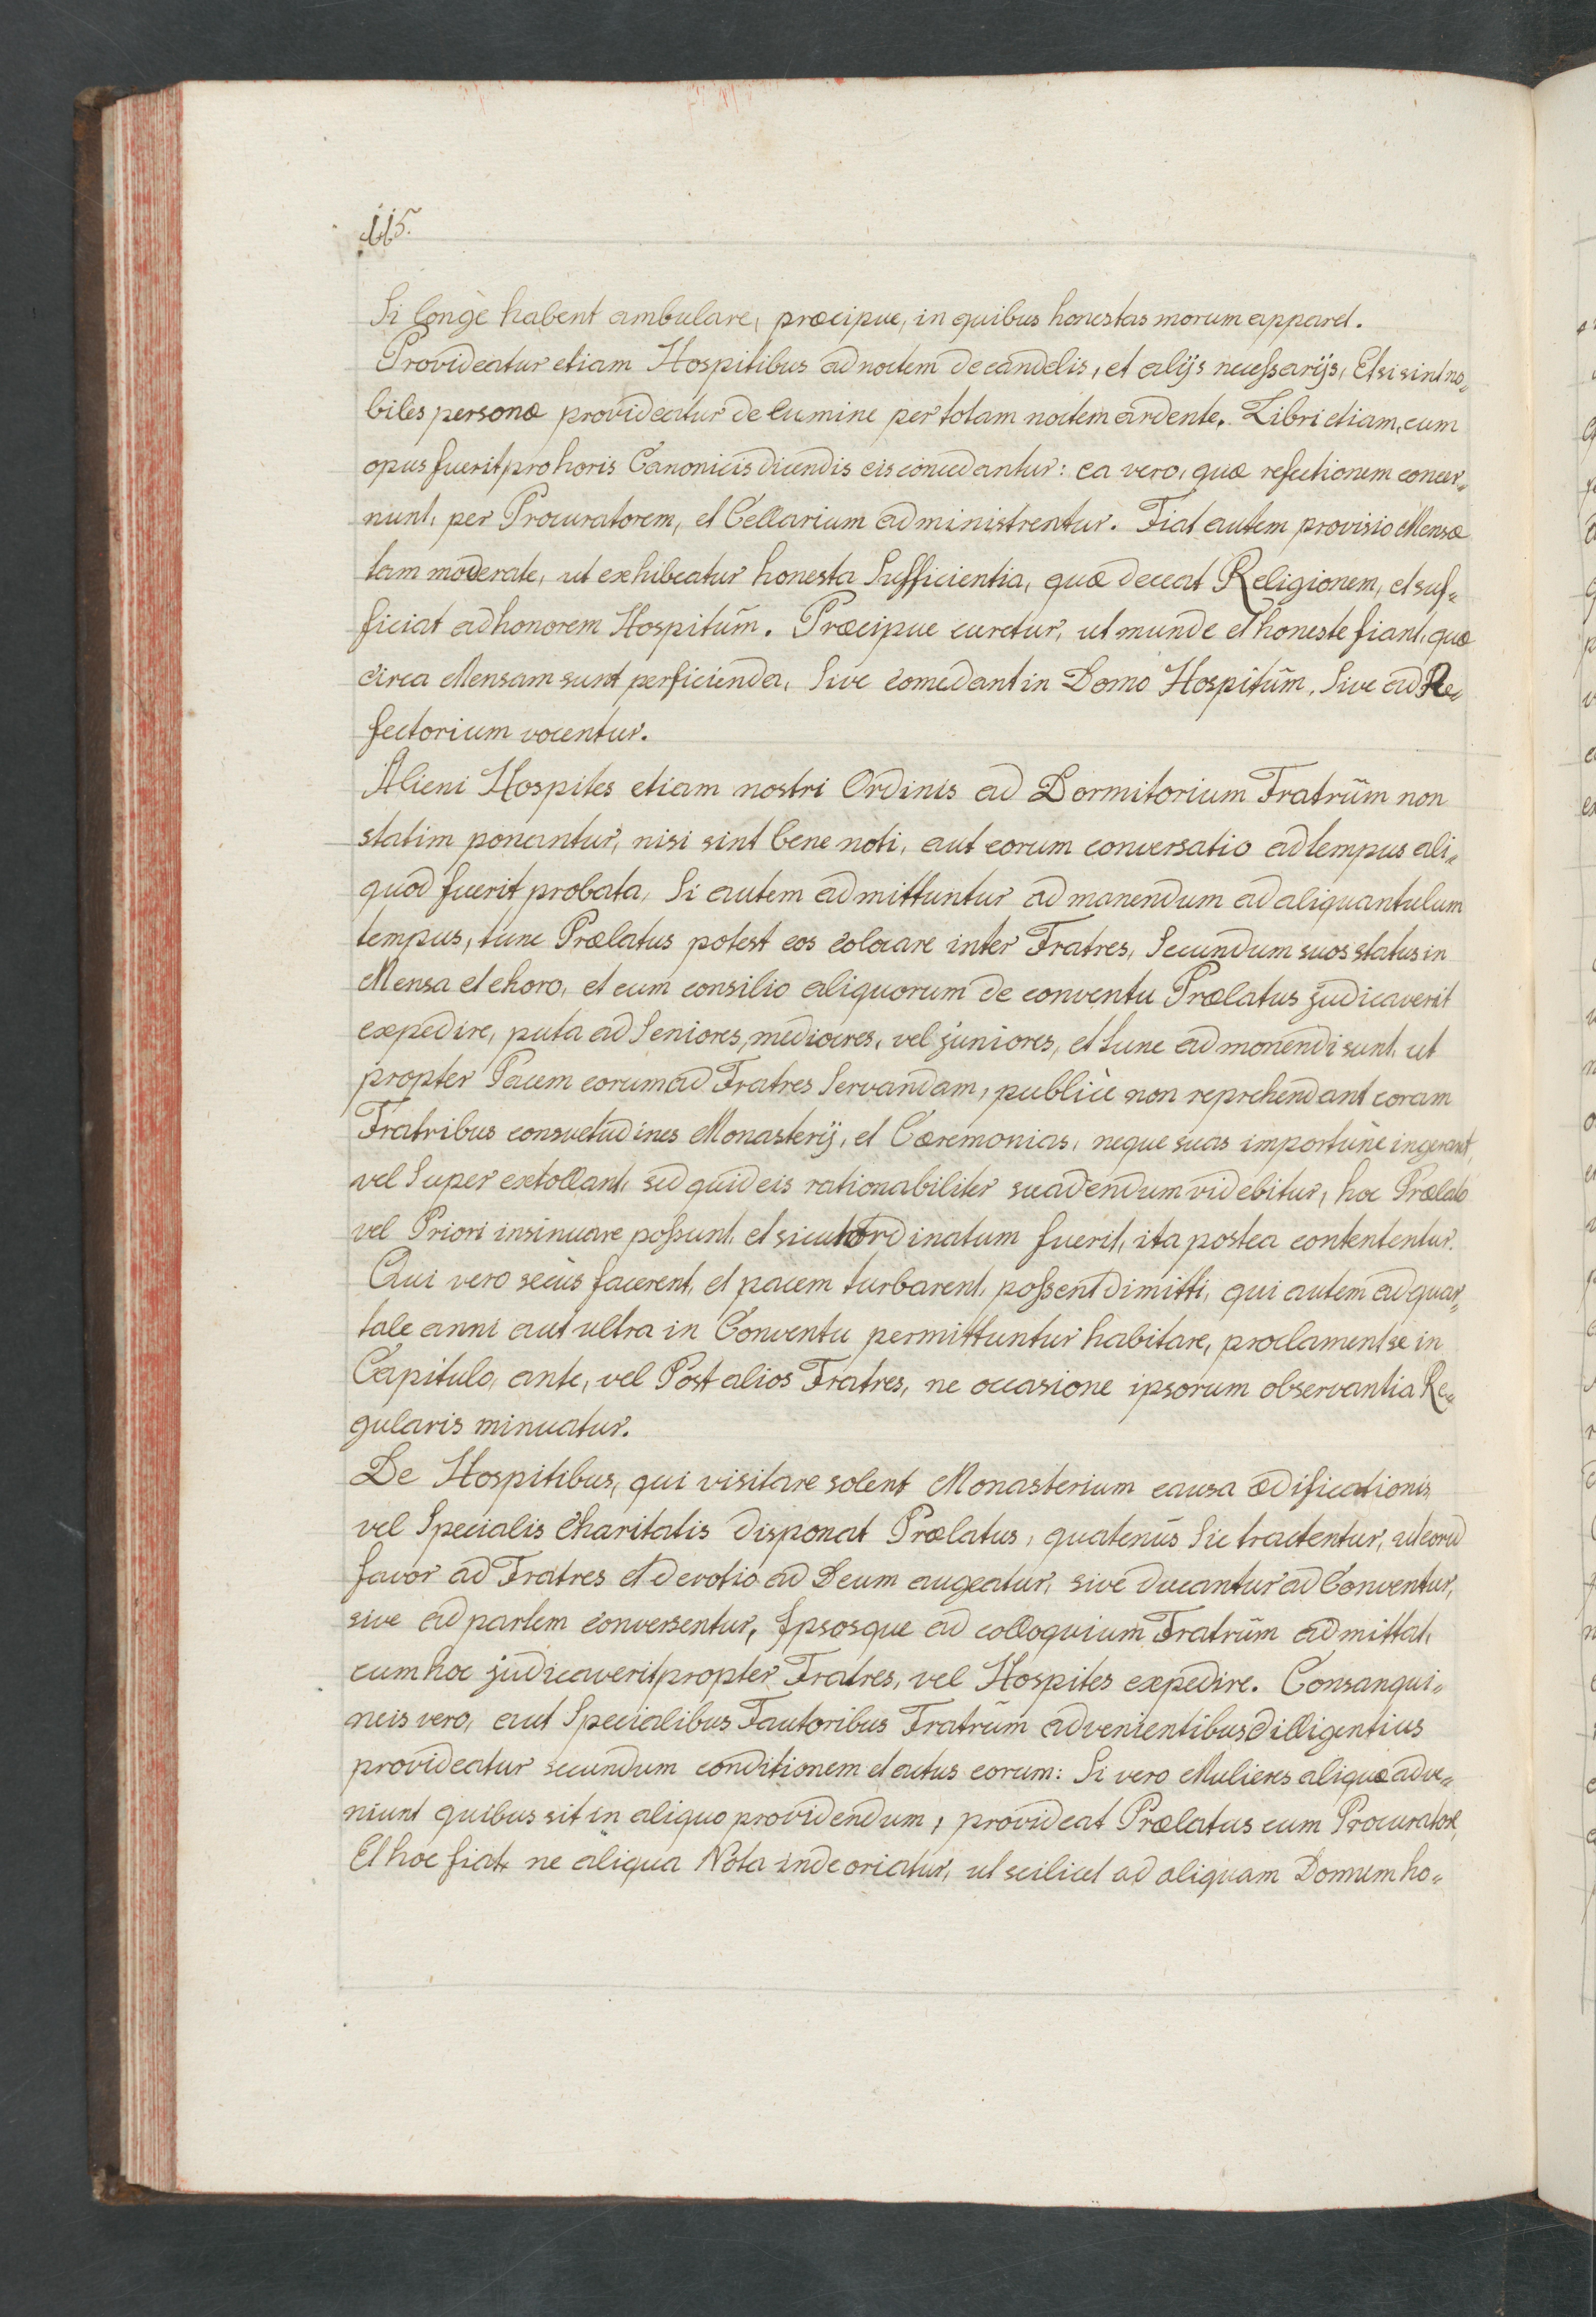 115.
Si longè habent ambulare, præcipue, in quibus honestas morum apparet.
Provideatur etiam Hospitibus ad noctem de candelis, et alijs neceſsarijs, Et si sint no„
biles personæ provideatur de lumine per totam noctem ardente. Libri etiam, cum
opus fuerit pro horis Canonicis dicendis eis concedantur: ea vero, quæ refectionem concer„
nunt, per Procuratorem, et Cellarium administrentur. Fiat autem provisio Mensæ
tam moderate, ut exhibeatur honesta Sufficientia, quæ deceat Religionem, et suf„
ficiat ad honorem Hospitũm. Præcipue curetur, ut munde et honeste fiant, quæ
circa Mensam sunt perficienda, Sive comedant in Domo Hospitũm, Sive ad Re„
fectorium vocentur.
Alieni Hospites etiam nostri Ordinis ad Dormitorium Fratrũm non
statim ponantur, nisi sint bene noti, aut eorum conversatio ad tempus ali„
quod fuerit probata, Si autem admittuntur ad manendum ad aliquantulum
tempus, tunc Prælatus potest eos colocare inter Fratres, Secundum suos status in
Mensa et choro, et cum consilio aliquorum de conventu Prælatus judicaverit
expedire, puta ad Seniores, mediocres, vel juniores, et tunc admonendi sunt, ut
propter Pacem eorum ad Fratres Servandam, publicè non reprehendant coram
Fratribus consvetudines Monasterij, et Cæremonias, neque suas importunè ingerant,
vel Super extollant, sed quid eis rationabiliter suadendum videbitur, hoc Prælato
vel Priori insinuare poſsunt, et sicut Ordinatum fuerit, ita postea contententur.
Qui vero secùs facerent, et pacem turbarent, poſsent dimitti, qui autem ad quar„
tale anni aut ultra in Conventu permittuntur habitare, proclament se in
Capitulo, ante, vel Post alios Fratres, ne occasione ipsorum observantia Re„
gularis minuatur.
De Hospitibus, qui visitare solent Monasterium causa ædificationis,
vel Specialis Charitatis disponat Prælatus, quatenùs Sic tractentur, ut eorũ
favor ad Fratres et devotio ad Deum augeatur, sive ducantur ad Conventur,
sive ad partem conversentur, Ipsosque ad colloquium Fratrũm admittat,
cum hoc judicaverit propter Fratres, vel Hospites expedire. Consangui„
neis vero, aut Specialibus Fautoribus Fratrũm advenientibus dilligentius
provideatur secundum conditionem et actus eorum: Si vero Mulieres aliquæ adve„
niunt quibus sit in aliquo providendum, provideat Prælatus cum Procuratore,
Et hoc fiat, ne aliqua Nota inde oriatur, ut scilicet ad aliquam Domum ho„